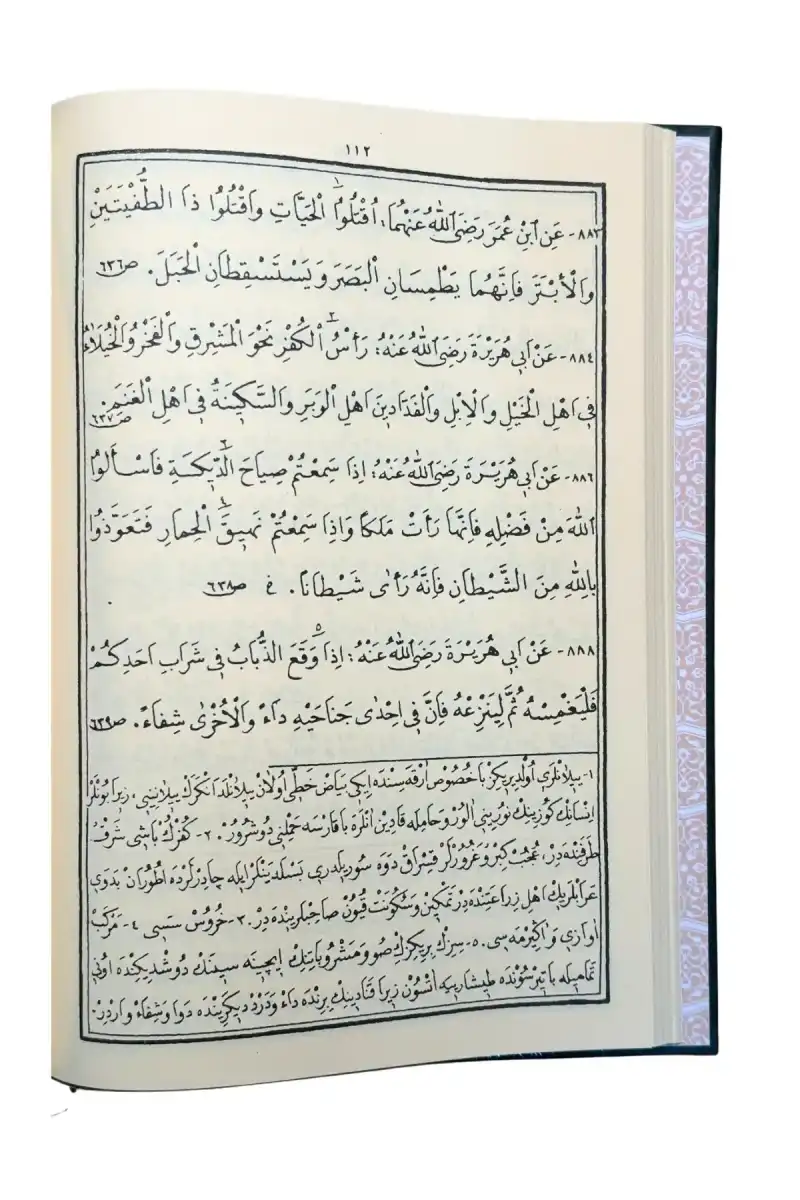 ١١٢
٨٨٣- عَنِ ابْنِ عُمَرَ رَضِىَ اللّٰهُ عَنْهُمَا: اُقْتُلُوا١ الْحَيَّاتِ وَاقْتُلُوا ذَا الطُّفْيَتَيْنِ
وَالْاَبْتَرَ فَاِنَّهُمَا يَطْمِسَانِ الْبَصَرَ وَيَسْتَسْقِطَانِ الْحَبَلَ. ص٦٣٦
٨٨٤- عَنْ اَبِى هُرَيْرَةَ رَضِىَ اللّٰهُ عَنْهُ: رَأْسُ٢ الْكُفْرِ نَحْوَ الْمَشْرِقِ وَالْفَخْرُ وَالْخُيَلَاءُ
فِى اَهْلِ الْخَيْلِ وَالْاِبْلِ وَالْفَدَّادِينَ اَهْلِ الْوَبَرِ وَالسَّكِينَةُ فِى اَهْلِ الْغَنَمِ. ص٦٣٧
٨٨٦- عَنْ اَبِى هُرَيْرَةَ رَضِىَ اللّٰهُ عَنْهُ: اِذَا سَمِعْتُمْ صِيَاحَ٣ الدِّيَكَةِ فَاسْأَلُوا
اللّٰهَ مِنْ فَضْلِهِ فَاِنَّهَا رَأَتْ مَلَكاً وَاِذَا سَمِعْتُمْ نَهِيقَ٤ الْحِمَارِ فَتَعَوَّذُوا
بِاللّٰهِ مِنَ الشَّيْطَانِ فَاِنَّهُ رَاٰى شَيْطَاناً. فى ص٦٣٨
٨٨٨- عَنْ اَبِى هُرَيْرَةَ رَضِىَ اللّٰهُ عَنْهُ: اِذَا٥ وَقَعَ الذُّبَابُ فِى شَرَابِ اَحَدِكُمْ
فَلْيَغْمِسْهُ ثُمَّ لِيَنْزِعْهُ فَاِنَّ فِى اِحْدٰى جَنَاحَيْهِ دَاءً وَالْاُخْرٰى شِفَاءً. ص٦٣٩
١- ييلانلرى اولديريكز باخصوص ارقه سنده ايكى بياض خطى اولان ييلانلدا انكرك ييلانينى، زيرا بونلر
انسانك كوزينك نورينى الور و حامله قادين انلره باقارسه حملنى دوشرور. ٢- كفرك باشى شرق
طرفنده در، عجب كبر و غرورلر قيسراق دوه سوريلرى بسله ينلر ايله چادرلرده اطوران بدوى
عرابلريك اهل زراعتنده در تمكين و سكونت قيون صاحبلرينده در. ٣- خروس سسى ٤- مركب
اوازى و اكيرمه سى. ٥- سزك بريكزك صو و مشروباتنك ايچينه سينك دوشديكنده اونى
تماميله باتيرسونده طيشاريه اتسون زيرا قنادينك برنده داء و درد ديكرينده دوا و شفاء واردر.